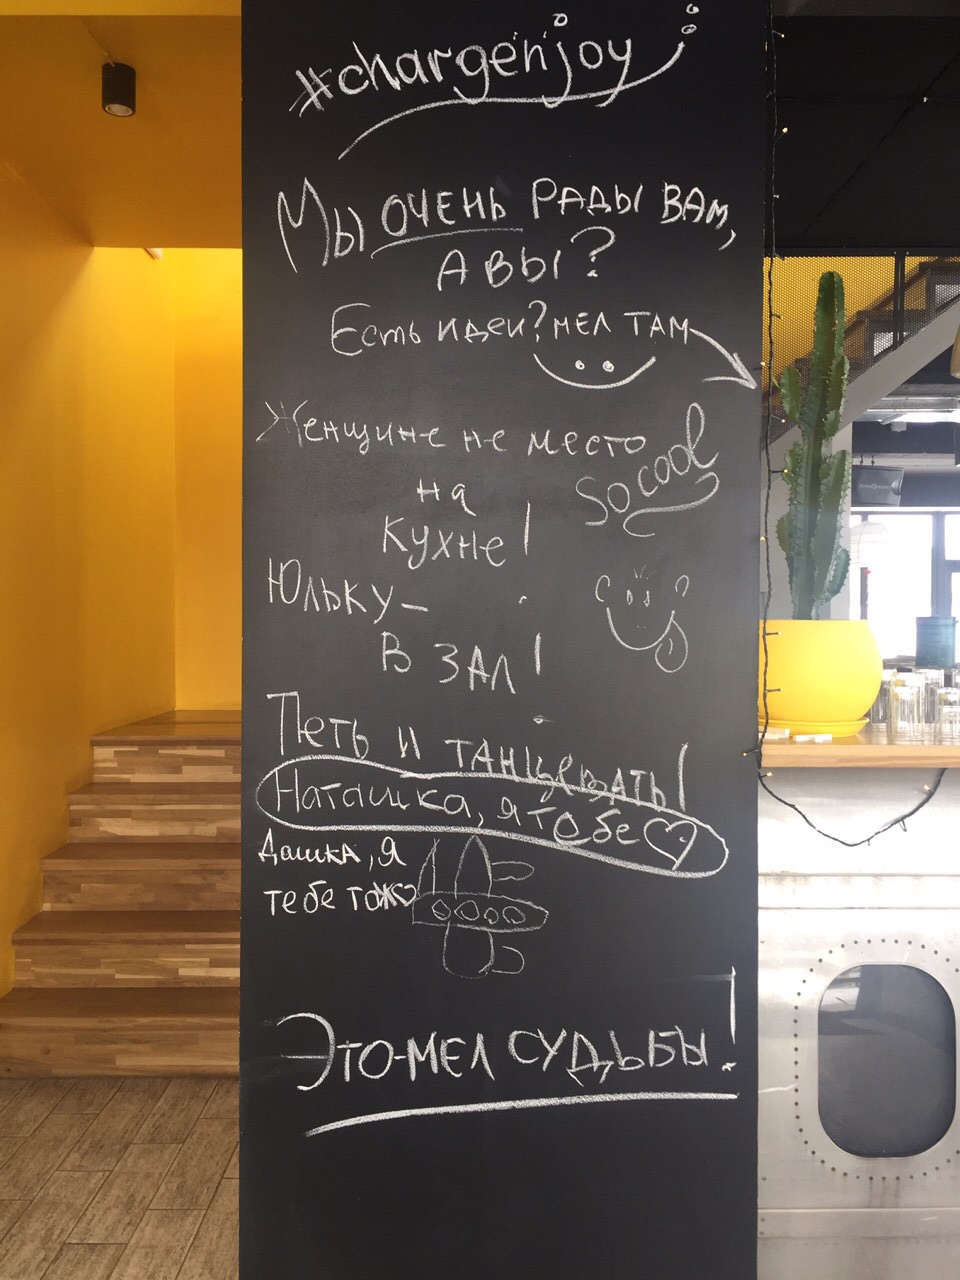 #chargenjoy
Мы ОЧЕНЬ РАДЫ ВАМ,
А ВЫ?
Есть идеи? МЕЛ ТАМ
Женщине не место
на
кухне!
So cool
Юльку –
В ЗАЛ!
Петь и ТАНЦЕВАТЬ!
Наташка, я тобе
Дашка, я
тебе тож
ЭТО-МЕЛ СУДЬБЫ!